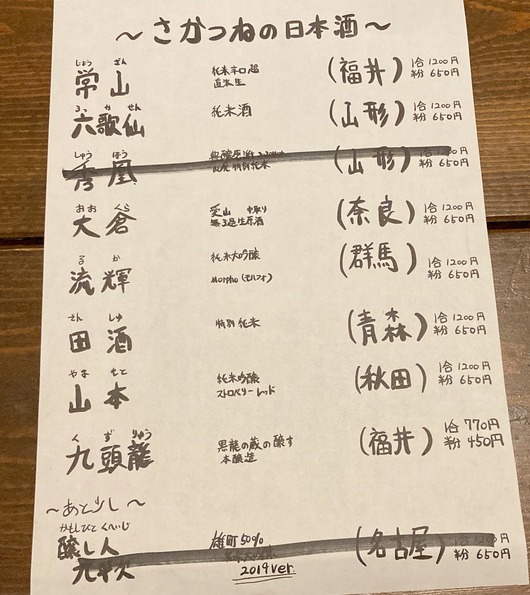 ～さかつねの日本酒～
じょう ざん
常山 純米辛口超 (福井) 1合 1200円
直汲生 半分 650円
ろっ か せん
六歌仙 純米酒 (山形) 1合 1200円
半分 650円
しゅう ほう
秀鳳 特別純米 (山形)
半分 650円
おお くら
大倉 (奈良) 1合 1200円
無ろ過生原酒 半分 650円
る か
流輝 純米大吟醸 (群馬) 1合 1200円
Morpho (モルフォ) 半分 650円
でん しゅ
田酒 特別純米 (青森) 1合 1200円
半分 650円
やま もと
山本 純米吟醸 (秋田) 1合 1200円
ストロベリーレッド 半分 650円
く ず りゅう
九頭龍 黒龍の蔵の醸す (福井) 1合 770円
本醸造 半分 450円
～あと少し～
かもしびと くへいじ
醸し人 雄町50% (名古屋)
九平次 半分 650円
2019ver.